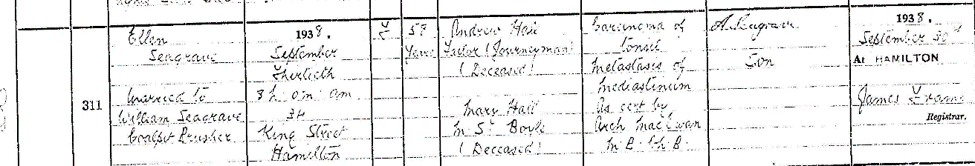 311
Ellen
Seagrave
Married to
William Seagrave
Coalpit Brusher
1938.
September
Thirtieth
8 h. 0 m. am
34
King Street
Hamilton
F
53
Years
Andrew Hall
(Journeyman)
(Deceased)
Mary Hall
M.S. Boyle
(Deceased)
Carcinoma of
Tonsil
Metastasis of
Mediastinum
As cert by
Arch MacEwan
M.B. Ch.B.
A. Seagrave
Son
1938.
September 30th
At HAMILTON
James Evans
Registrar.